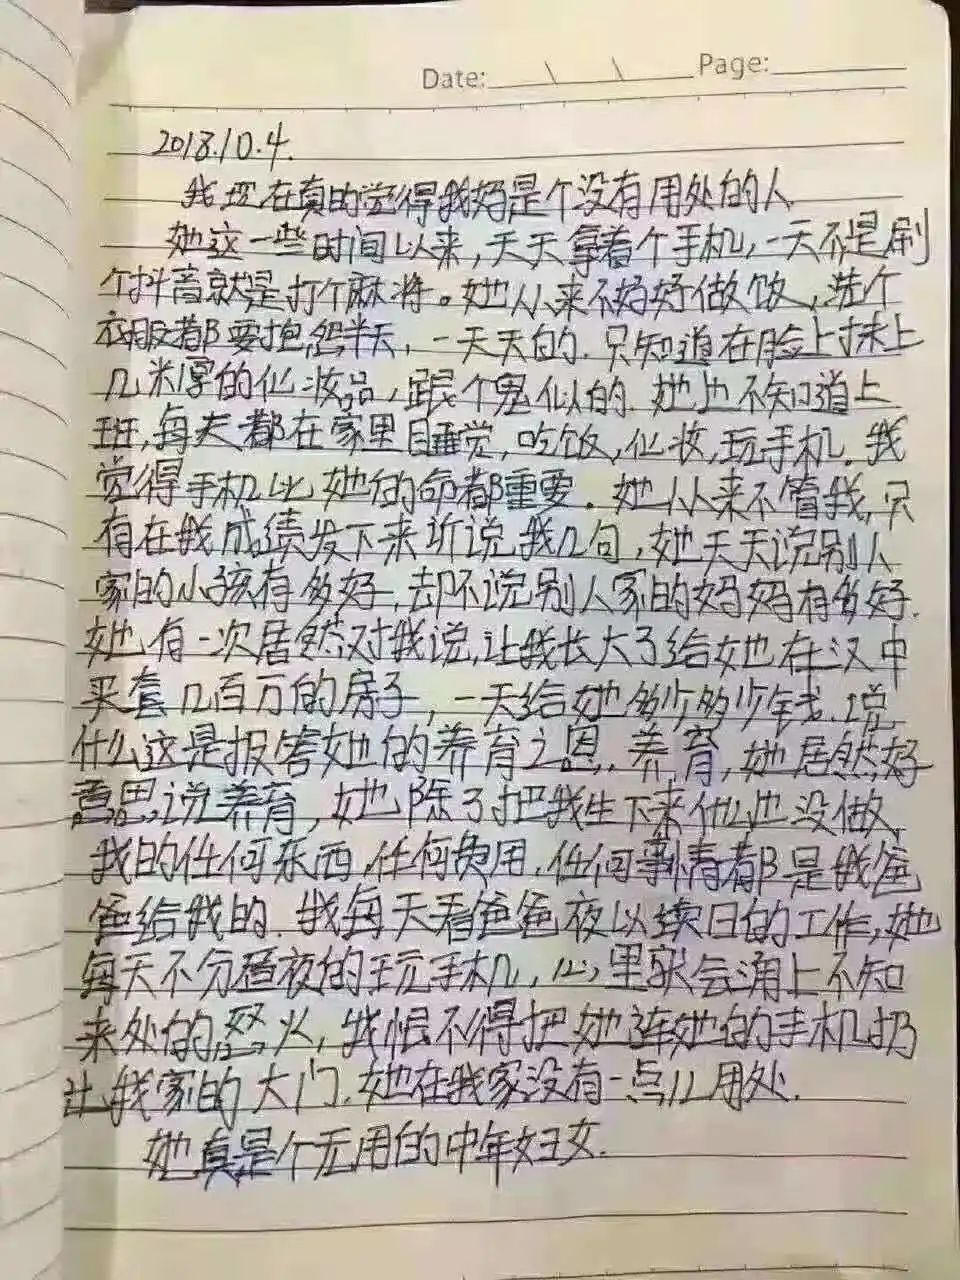 Date: \ \ Page:
2018.10.4.
我现在真的觉得我妈是个没有用处的人
她这一些时间以来，天天拿着个手机，一天不是刷
个抖音就是打个麻将。她从来不好好做饭，洗个
衣服都要抱怨半天，一天天的.只知道在脸上抹上
几米厚的化妆品，跟个鬼似的.她也不知道上
班，每天都在家里睡觉，吃饭，化妆，玩手机.我
觉得手机比她的命都重要.她从来不管我，只
有在我成绩发下来听说我几句，她天天说别人
家的小孩有多好，却不说别人家的妈妈有多好.
她有一次居然对我说，让我长大了给她在汉中
买套几百万的房子，一天给她多少多少钱.说
什么这是报答她的养育之恩，养育，她居然好
意思说养育，她除了把我生下来什么也没做，
我的任何东西，任何费用，任何事情都是我爸
爸给我的.我每天看爸爸夜以续日的工作，她
每天不分昼夜的玩手机，心里就会涌上不知
来处的怒火，我恨不得把她连她的手机扔
出我家的大门.她在我家没有一点儿用处.
她真是个无用的中年妇女.